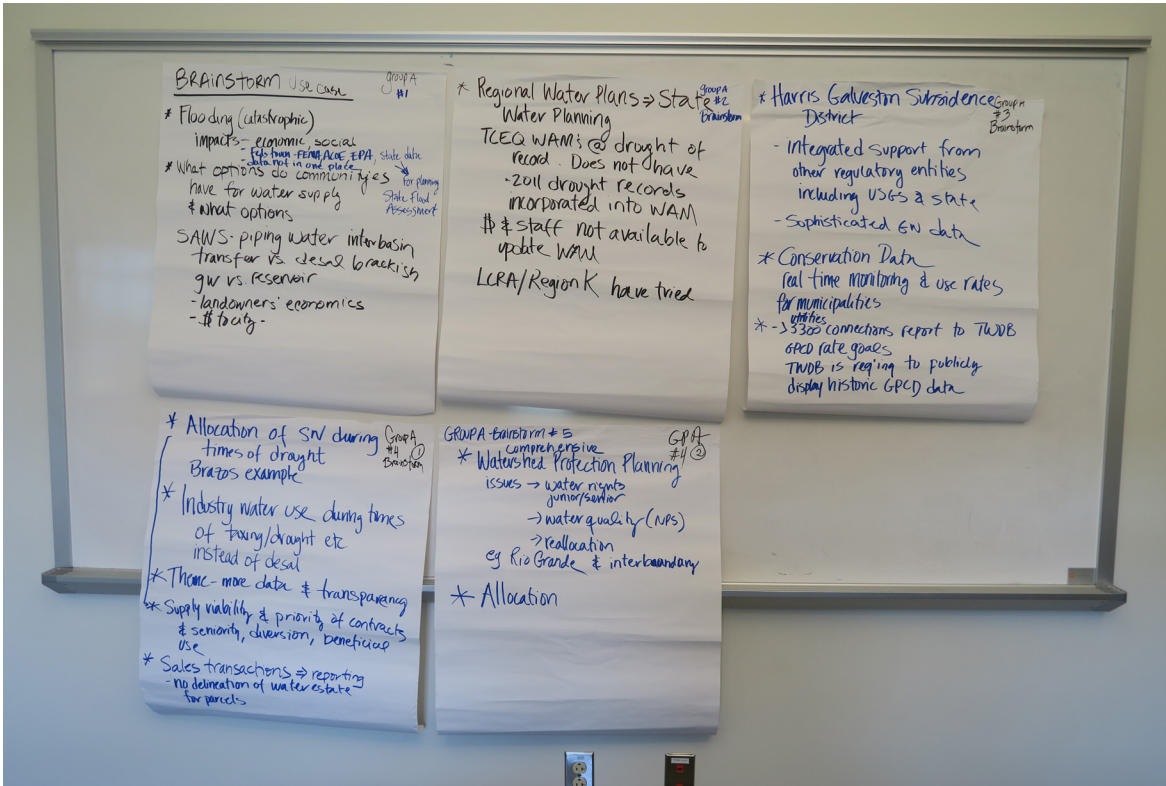 BRAINSTORM Use case
group A
#1
* Flooding (catastrophic)
impacts - economic, social
Feds town - FEMA, ACOE, EPA, state data
- data not in one place
* What options do communities
have for water supply
& what options
for planning
State Flood
Assessment
SAWS - piping water interbasin
transfer vs. desal brackish
gw vs. reservoir
- landowners' economics
- $ to city -
* Regional Water Plans ⇒ State
Water Planning
group A
#2
Brainstorm
TCEQ WAMs @ drought of
record. Does not have
- 2011 drought records
incorporated into WAM
$ & staff not available to
update WAM
LCRA/Region K have tried
* Harris Galveston Subsidence
District
Group A
#3
Brainstorm
- Integrated support from
other regulatory entities
including USGS & state
- Sophisticated GW data
* Conservation Data
real time monitoring & use rates
for municipalities
utilities
* -> 3300 connections report to TWDB
GPCD rate goals
TWDB is req'ing to publicly
display historic GPCD data
* Allocation of SW during
times of drought
Brazos example
Group A
#4 ①
Brainstorm
* Industry water use during times
of taxing/drought etc
instead of desal
* Theme - more data & transparency
* Supply viability & priority of contracts
& seniority, diversion, beneficial
use
* Sales transactions ⇒ reporting
- no delineation of water estate
for parcels
GROUP A - Brainstorm # 5
GPA
#4 ②
comprehensive
* Watershed Protection Planning
issues → water rights
junior/senior
→ water quality (NPS)
→ reallocation
eg Rio Grande & interboundary
* Allocation